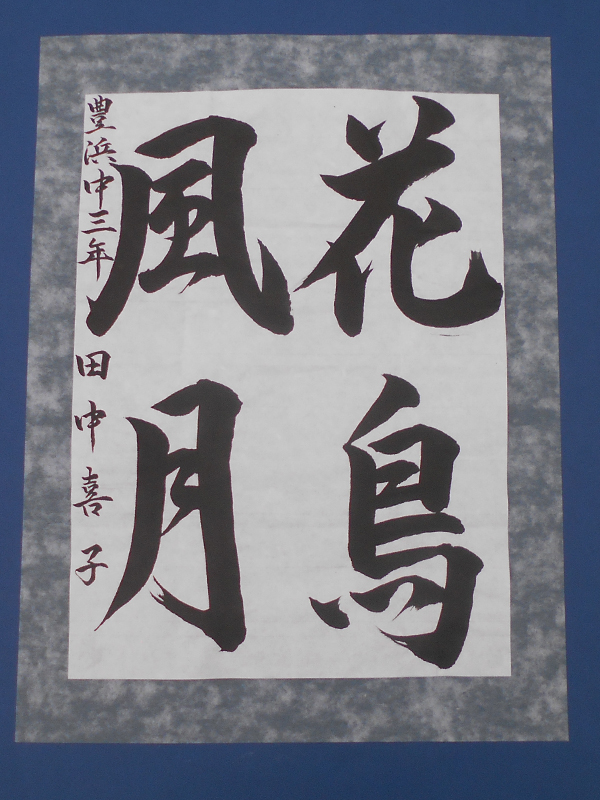 花鳥
風月
豊浜中三年 田中喜子